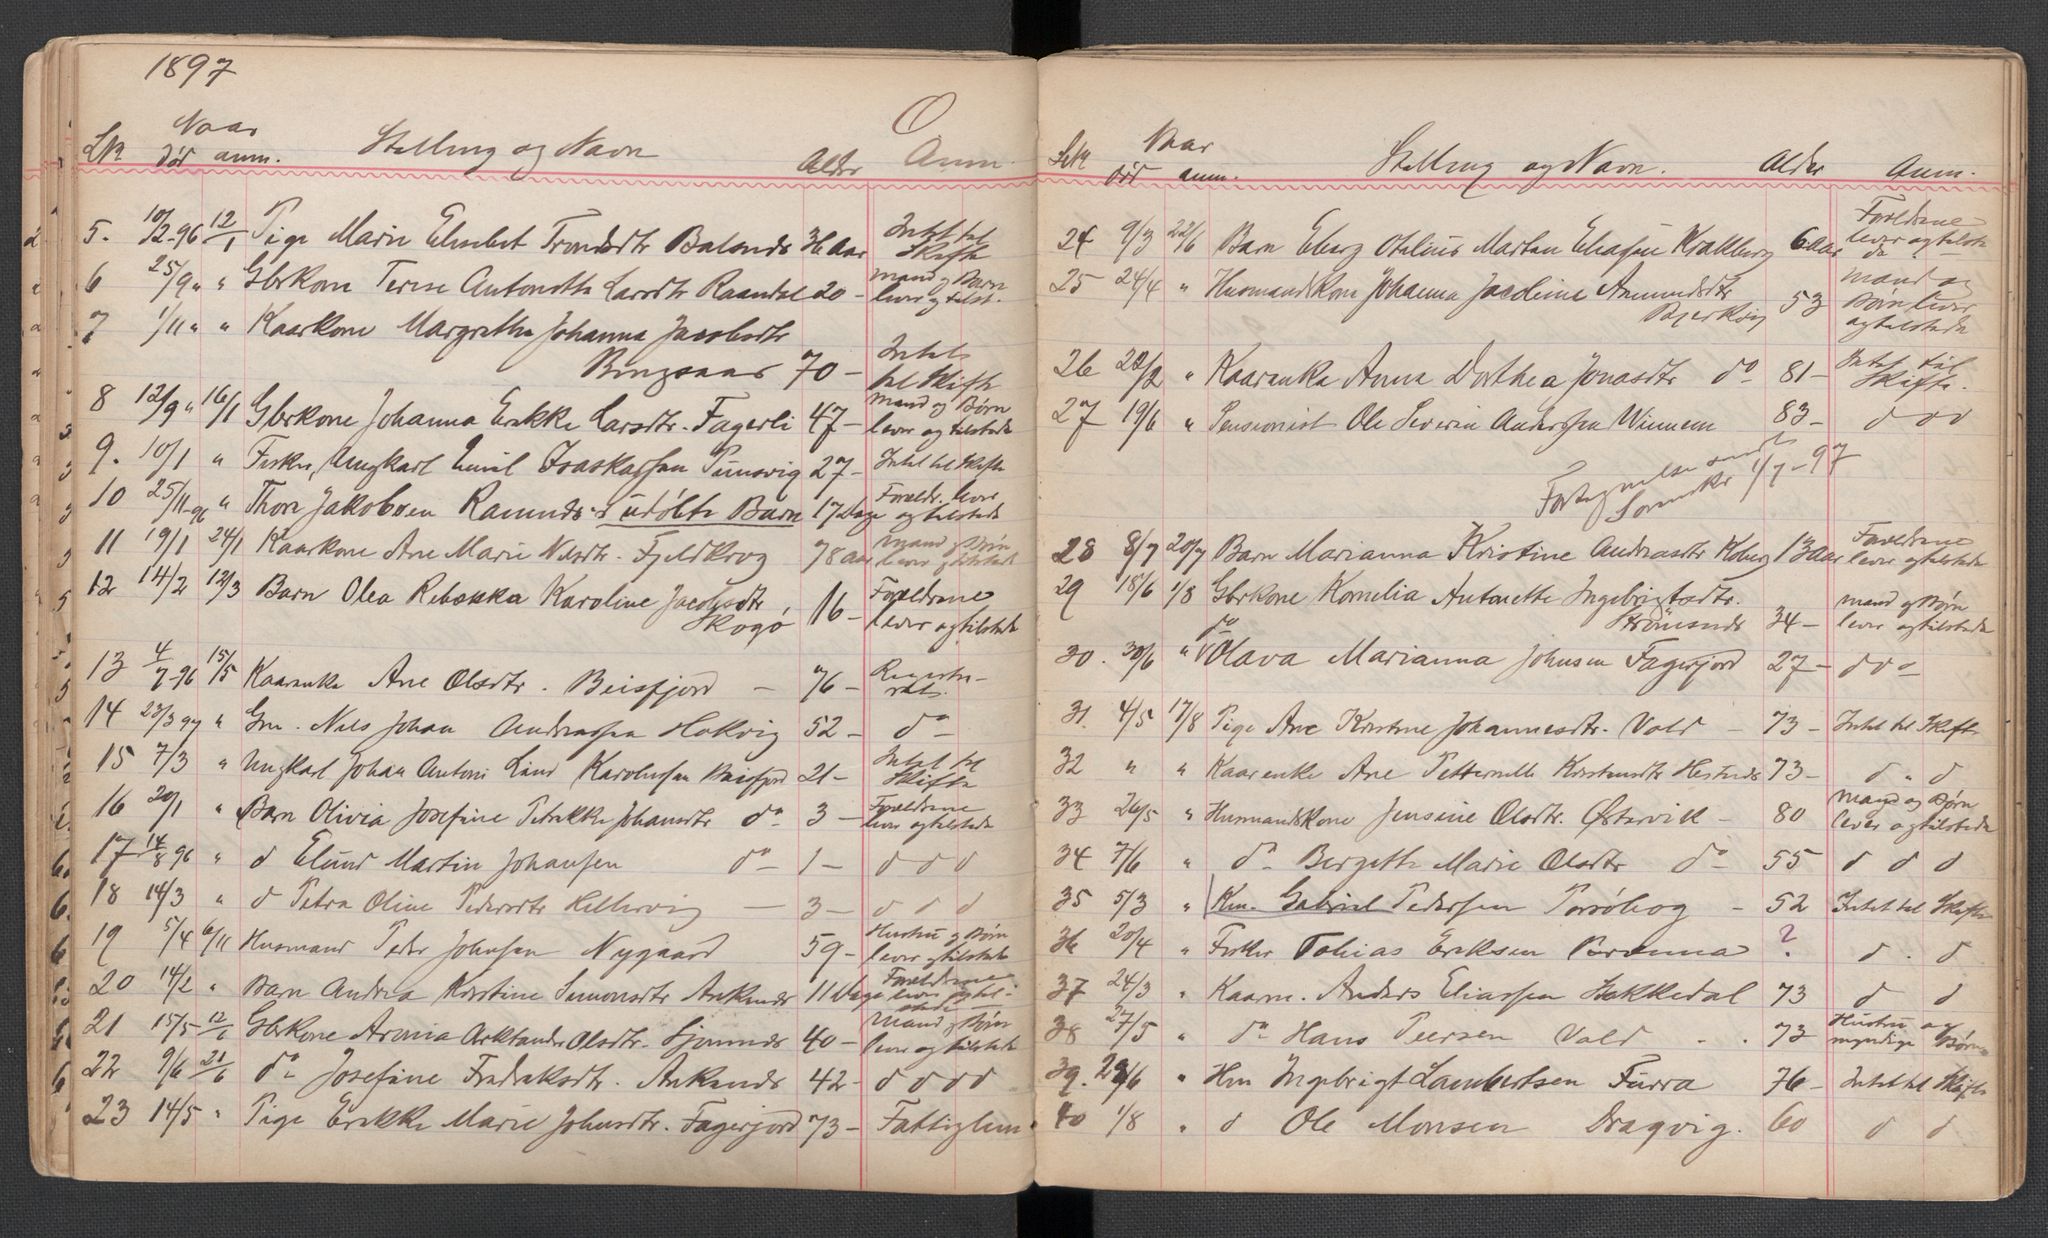 1897
Naar
død anm. Stilling og Navn Alder Anm.
5. 10/2-96 12/1 Pige Marie Elisebet Trondsdtr Balsnds 36 Aar Intet til Skifte
6 25/9 " " Gbrkone Terese Antonette Larsdtr Raandal 20 - mand og Barn lever og tilst.
7 1/11 " " Kaarkone Margrethe Johanna Jacobsdtr
70 - Intet til Skifte
8 12/9 " 16/1 Gbrkone Johanna Erikke Larsdtr. Fagerli 47 - mand og Børn lever og tilstede
9. 10/1 " Fisker, Ungkarl Emil Isaskarsen 27 - Intet til Skifte
10 25/11-96 " Thora Jakobsen Ramnds. udøbt Barn 17 Dage Forældr. lever og tilstede
11 19/1 24/1 Kaarkone Ane Marie Nilsdtr. Fjeldkrog 78 aar mand og Børn lever og tilstede
12 14/2 12/3 Barn Olea Rebekka Karoline Jacobsdtr,
Skogø 16 - Forældrene lever og tilstede
13 4/7-96 15/5 Kaarenke Ane Olsdtr. Beisfjord - 76 - Registreret.
14 23/3 97 " Gm. Nils Johan Andreassen Hokvig 52 - do
15 7/3 " Ungkarl Johan Antoni Lind Karolussen Beisfjord 21 - Intet til Skifte
16 20/1 " Barn Olivia Josefine Petrikke Johansdtr do 3 - Forældrene lever og tilstede
17 14/8 96 " d Elund Martin Johansen do 1 - d d d
18 14/3 " d Petra Oline Pedersdtr Hellervig - 3 - d d d
19 5/4 6/11 Husmand Peder Johnsen Nygaard 59 - Hustru og Børn lever og tilstede
20 14/2 " Barn Andrea Kristine Simonsdtr Ankends 11 Dage Forældrene lever og tilstede
21 15/5 12/6 Gbrkone Aronia Arktanda Olsdtr. 40 - mand og Børn lever og tilstede
22 9/6 21/6 do Josefine Fredriksdtr. Ankends 42 - d d d d
23 14/5 " Pige Erikke Marie Johnsdtr. Fagerjord 73 - Fattiglem
Naar
død anm. Stilling og Navn. Alder Anm.
24 9/3 22/6 Barn Eberg Otelius Martin Eliasen Krakberg 6 aar Forældrene lever og tilstede
25 24/4 " Husmandskone Johanna Jacobine Amundsdtr
Bjerkvig 53 mand og Børn lever og tilstede
26 22/2 " Kaarenke Anna Dorthea Jonasdtr do 81 - Intet til Skifte.
27 19/6 " Pensionist Ole Severin Anderssen Winnem 83 - d d d
Fortegnelse sendt
Sorenskr 1/7-97
28 8/7 20/7 Barn Marianna Kristine Andreasdtr Koberg 13 aar Forældrene lever og tilstede
29 18/6 1/8 Gbrkone Kornelia Antonette Ingebrigtsdtr.
Strømsnds 34 - mand og Børn lever og tilstede
30. 30/6 " do Olava Marianna Johnsen Fagerjord 27 - d d o
31. 4/5 17/8 Pige Ane Kristine Johannesdtr. Vold - 73 - Intet til Skifte
32 " " Kaarenke Ane Petternille Kristensdtr Hestnds 73 - d " d
33 26/5 " Husmandskone Jensine Olsdtr. Østervik - 80 Mand og Børn lever og tilstede
34 7/6 " do Bergitte Marie Olsdtr do - 55 d d d
35 5/3 " Km. Gabriel Pedersen - 52 Intet til Skifte
36 20/4 " Fisker Tobias Eriksen ? d . d
37 24/3 " Kaarm. Anders Eliassen Bakkedal 73 d d
38 27/5 " do Hans Peersen Vold - . 73 Hustru og myndige Børn
39. 29/6 " Hm Ingebrigt Lambertsen Furra 76 - Intet til Skifte
40 1/8 " d Ole Monsen Dragvig. 60 d d